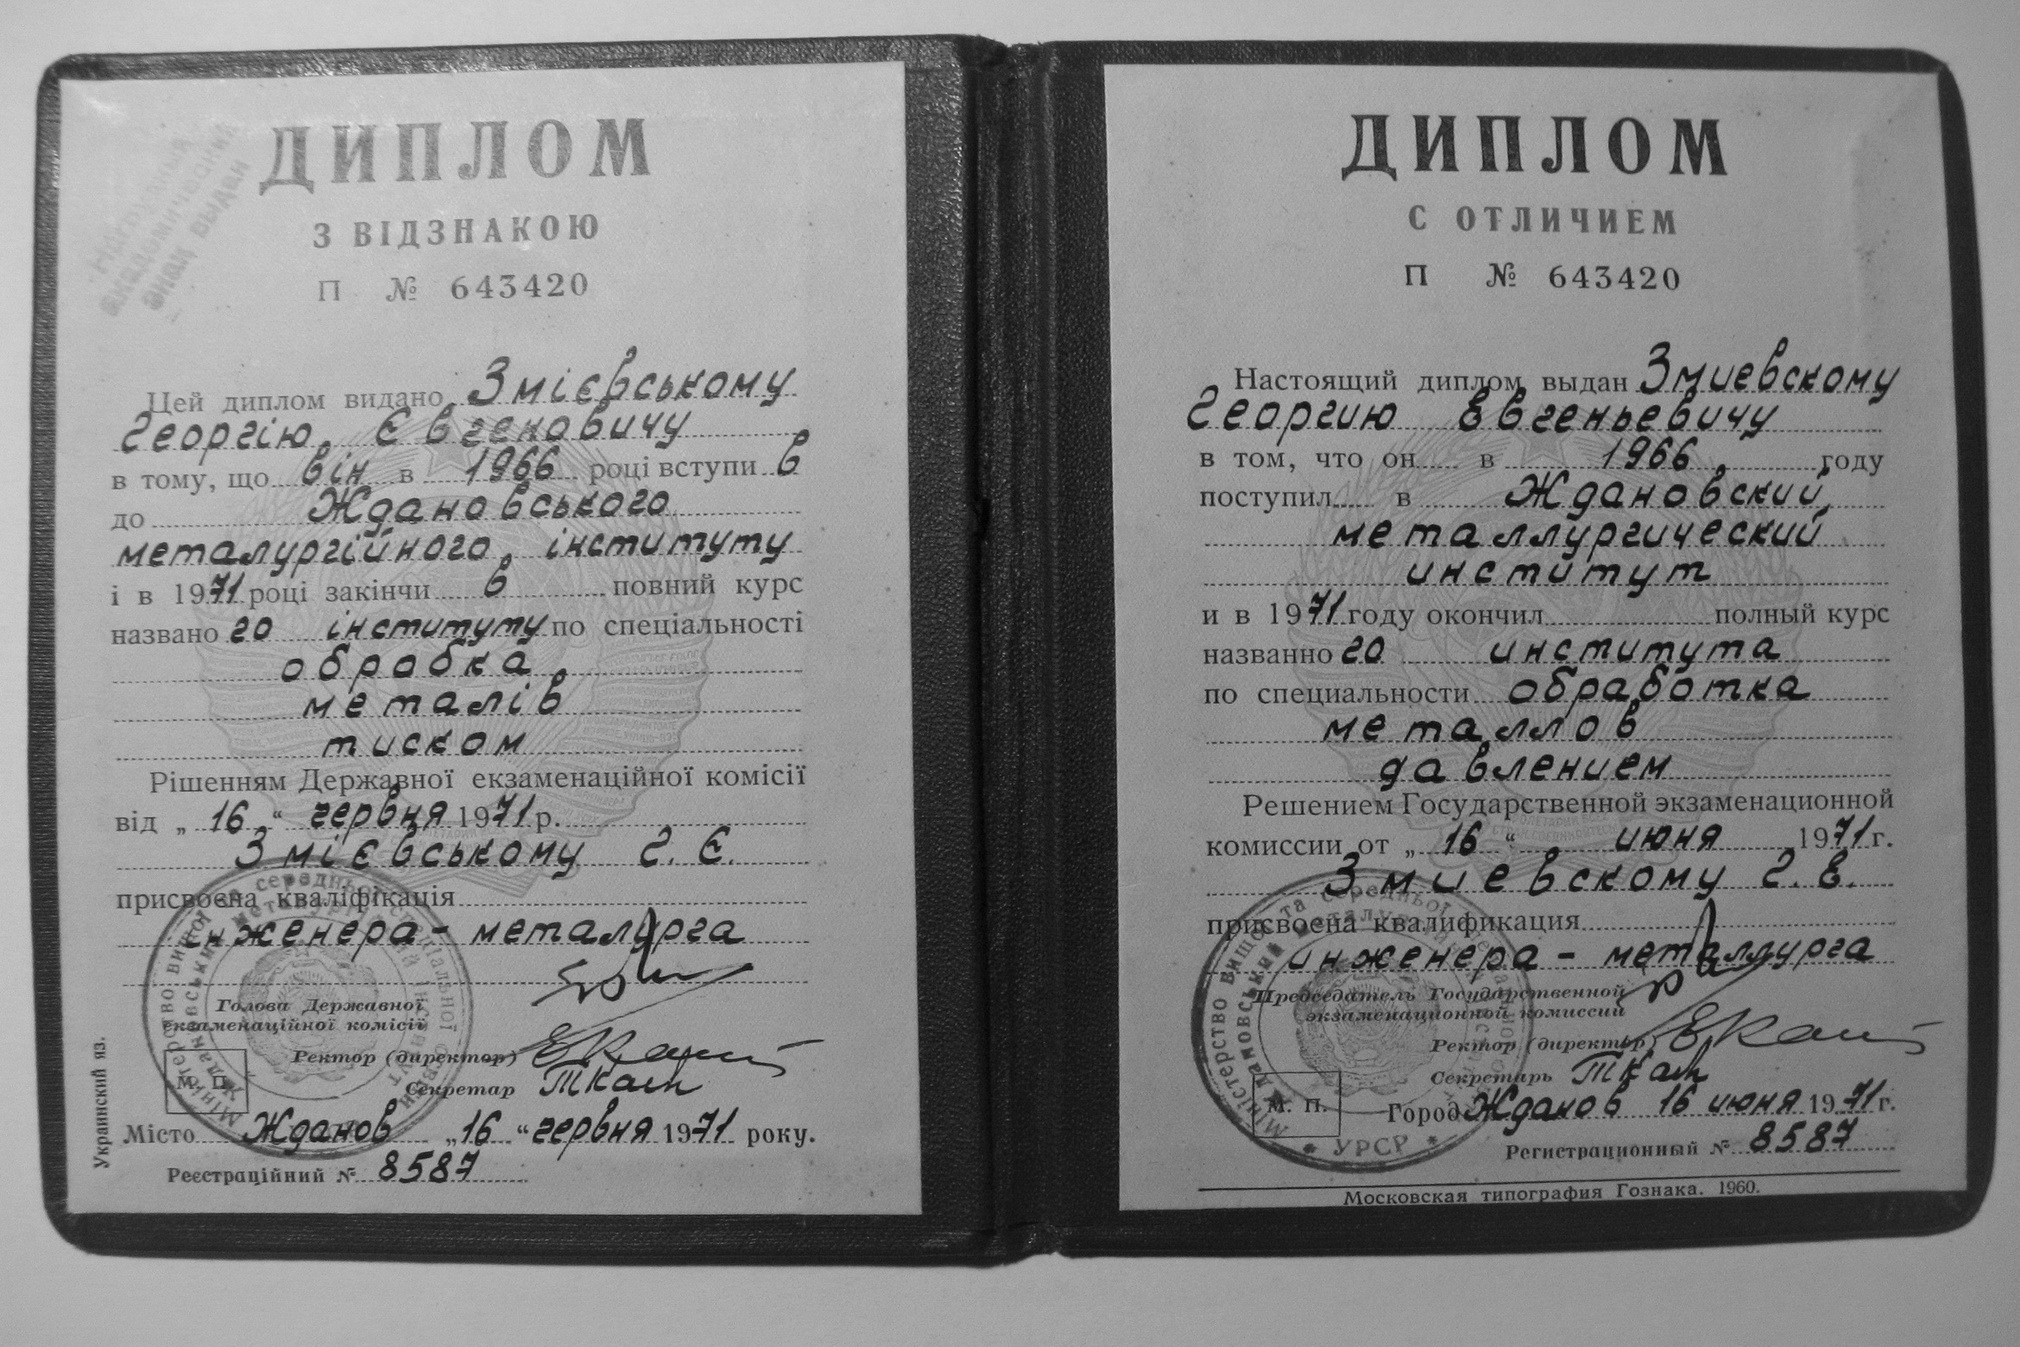 Нагрудный
академический
знак выдан
ДИПЛОМ
З ВІДЗНАКОЮ
П № 643420
Цей диплом видано Змієвському
Георгію Євгеновичу
в тому, що він в 1966 році вступи в
до Ждановського
металургійного інституту
і в 1971 році закінчи в повний курс
названо го інституту по спеціальності
обробка
металів
тиском
Рішенням Державної екзаменаційної комісії
від „ 16 “ червня 1971 р.
Змієвському Г. Є.
присвоєна кваліфікація
інженера - металурга
Голова Державної
екзаменаційної комісії
Ректор (директор)
Секретар Ткач
М. П.
Місто Жданов „16 “ червня 1971 року.
Реєстраційний № 8587
Украинский яз.
ДИПЛОМ
С ОТЛИЧИЕМ
П № 643420
Настоящий диплом выдан Змиевскому
Георгию Евгеньевичу
в том, что он в 1966 году
поступил в Ждановский
металлургический
институт
и в 1971 году окончил полный курс
названно го института
по специальности обработка
металлов
давлением
Решением Государственной экзаменационной
комиссии от „ 16 “ июня 1971 г.
Змиевскому Г. Е.
присвоена квалификация
инженера - металлурга
Председатель Государственной
экзаменационной комиссии
Ректор (директор)
Секретарь Ткач
М. П.
Город Жданов 16 июня 1971 г.
УРСР
Регистрационный № 8587
Московская типография Гознака. 1960.